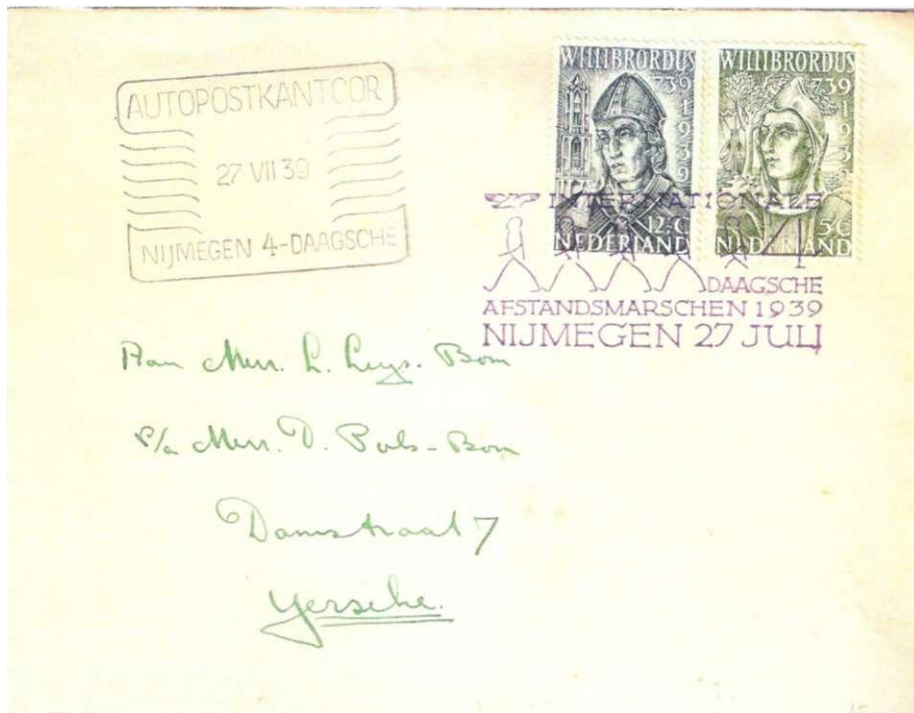 AUTOPOSTKANTOOR
27 VII 39
NIJMEGEN 4-DAAGSCHE
WILLIBRORDUS
739
1939
12½ C
NEDERLAND
WILLIBRORDUS
739
1939
5C
NEDERLAND
INTERNATIONALE
4 DAAGSCHE
AFSTANDSMARSCHEN 1939
NIJMEGEN 27 JULI
Aan Mevr. L. Leys-Bom
P/a Mevr. D. Pols-Bom
Damstraat 7
Yerseke.